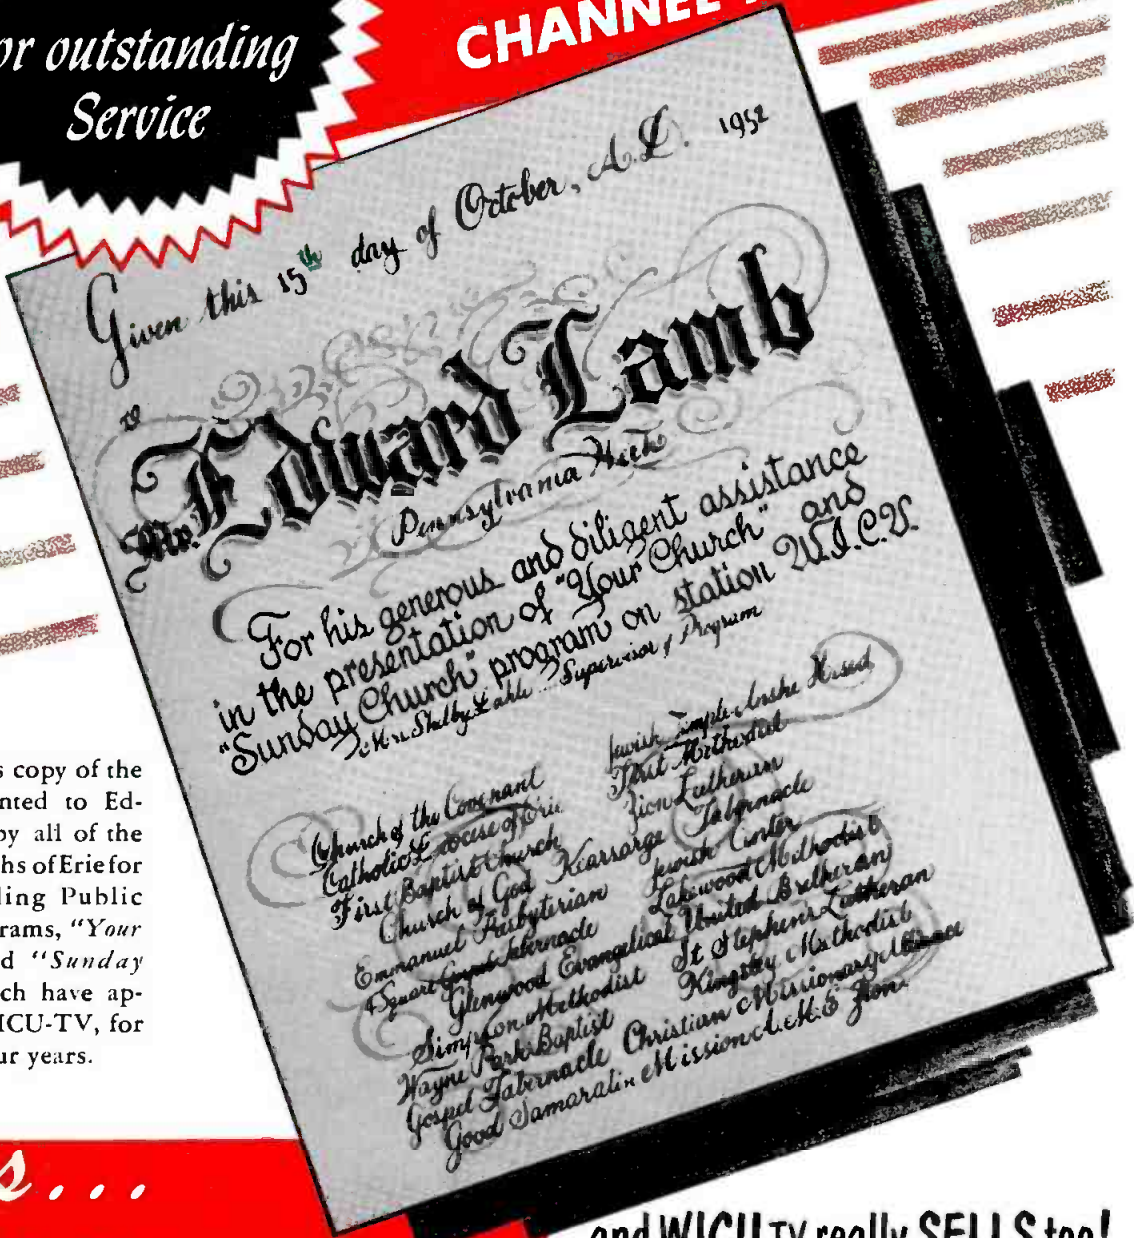 or outstanding
Service
CHANNEL
Given this 15th day of October, A.D. 1952
to
Mr. Edward Lamb
Pennsylvania Week
For his generous and diligent assistance
in the presentation of "Your Church" and
"Sunday Church" program on station W.I.C.U.
Mrs. Shelby Supervisor of Program
Church of the Covenant
Catholic Diocese of Erie
First Baptist Church
Church of God
Emmanuel Presbyterian
4 Square Gospel Tabernacle
Glenwood Evangelical United Bretheran
Simpson Methodist
Wayne Park Baptist
Gospel Tabernacle Christian Missionary Alliance
Good Samaratin Mission A.M.E. Zion.
Jewish Temple Anshe Hesed
First Methodist
Zion Lutheran
Kearsarge Tabernacle
Jewish Center
Lakewood Methodist
St Stephen's Lutheran
Kingsley Methodist
s copy of the
nted to Ed-
by all of the
hs of Erie for
ling Public
rams, "Your
d "Sunday
ch have ap-
ICU-TV, for
ur years.
s...
and WICU-TV really SELLS too!